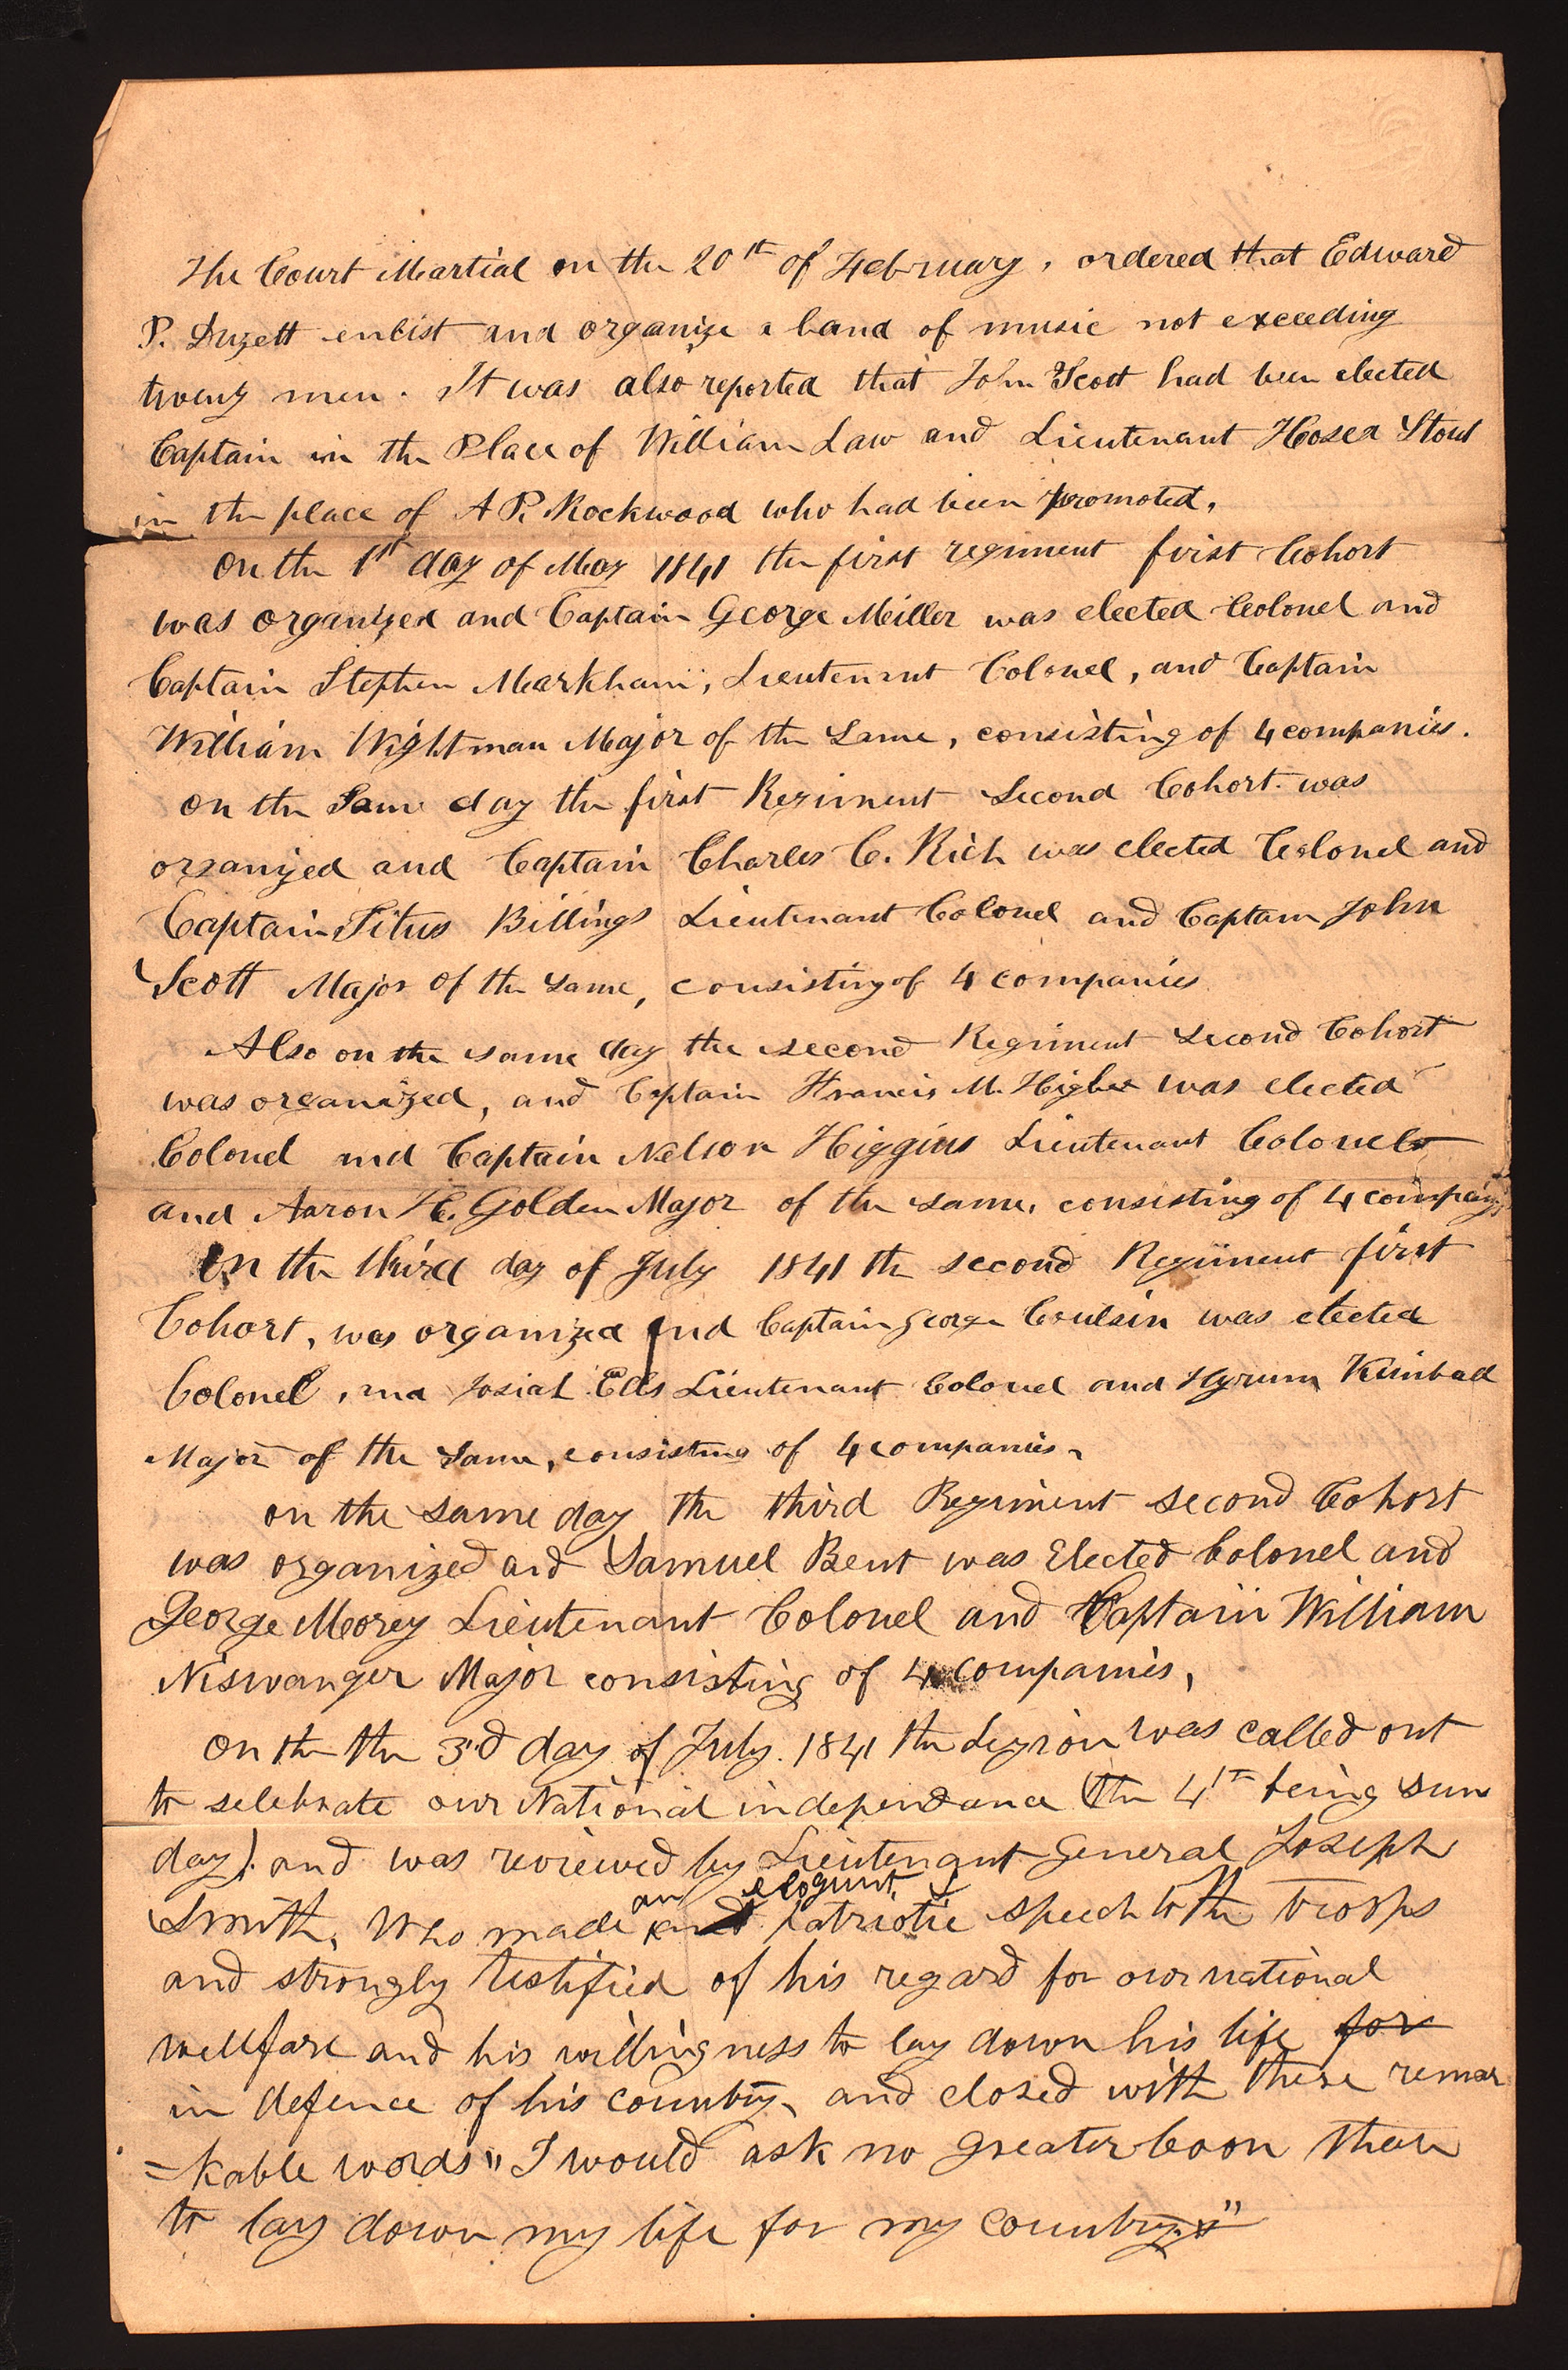 The Court Martial on the 20th of February, ordered that Edward
P. Duzett enlist and organize a band of music not exceeding
twenty men. It was also reported that John Scott had been elected
Captain in the Place of William Law and Lieutenant Hosea Stout
in the place of A P. Rockwood who had been promoted,
on the 1st day of May 1841 the first regiment first Cohort
was organized and Captain George Miller was elected Colonel and
Captain Stephen Markham, Lieutenant Colonel, and Captain
William Wightman Major of the Same, consisting of 4 companies.
on the Same day the first Regiment Second Cohort was
organized and Captain Charles C. Rich was elected Colonel and
Captain Titus Billings Lieutenant Colonel and Captain John
Scott Major of the Same, consisting of 4 companies
Also on the same day the second Regiment Second Cohort
was organized, and Captain Francis M. Higbee was elected
Colonel and Captain Nelson Higgins Lieutenant Colonel
and Aaron H. Golden Major of the same, consisting of 4 companys
On the third day of July 1841 the second Regiment first
Cohort, was organized and Captain George Coulsin was elected
Colonel, and Josiah Ells Lieutenant Colonel and Hyrum Kimball
Major of the Same, consisting of 4 companies,
on the same day the third Regiment second Cohort
was organized and Samuel Bent was Elected Colonel and
George Morey Lieutenant Colonel and Captain William
Niswanger Major consisting of 4 Companies,
on the the 3d day of July. 1841 the Legion was called out
to selebrate our National independance (the 4th being sun
day). and was reviewed by Lieutenant General Joseph
an eloqunt &
Smith, Who made patriotic speech to the troops
and strongly testified of his regard for our national
wellfare and his willingness to lay down his life for
in defence of his country, and closed with these remar
=kable words "I would ask no greater boon than
to lay down my life for my country"